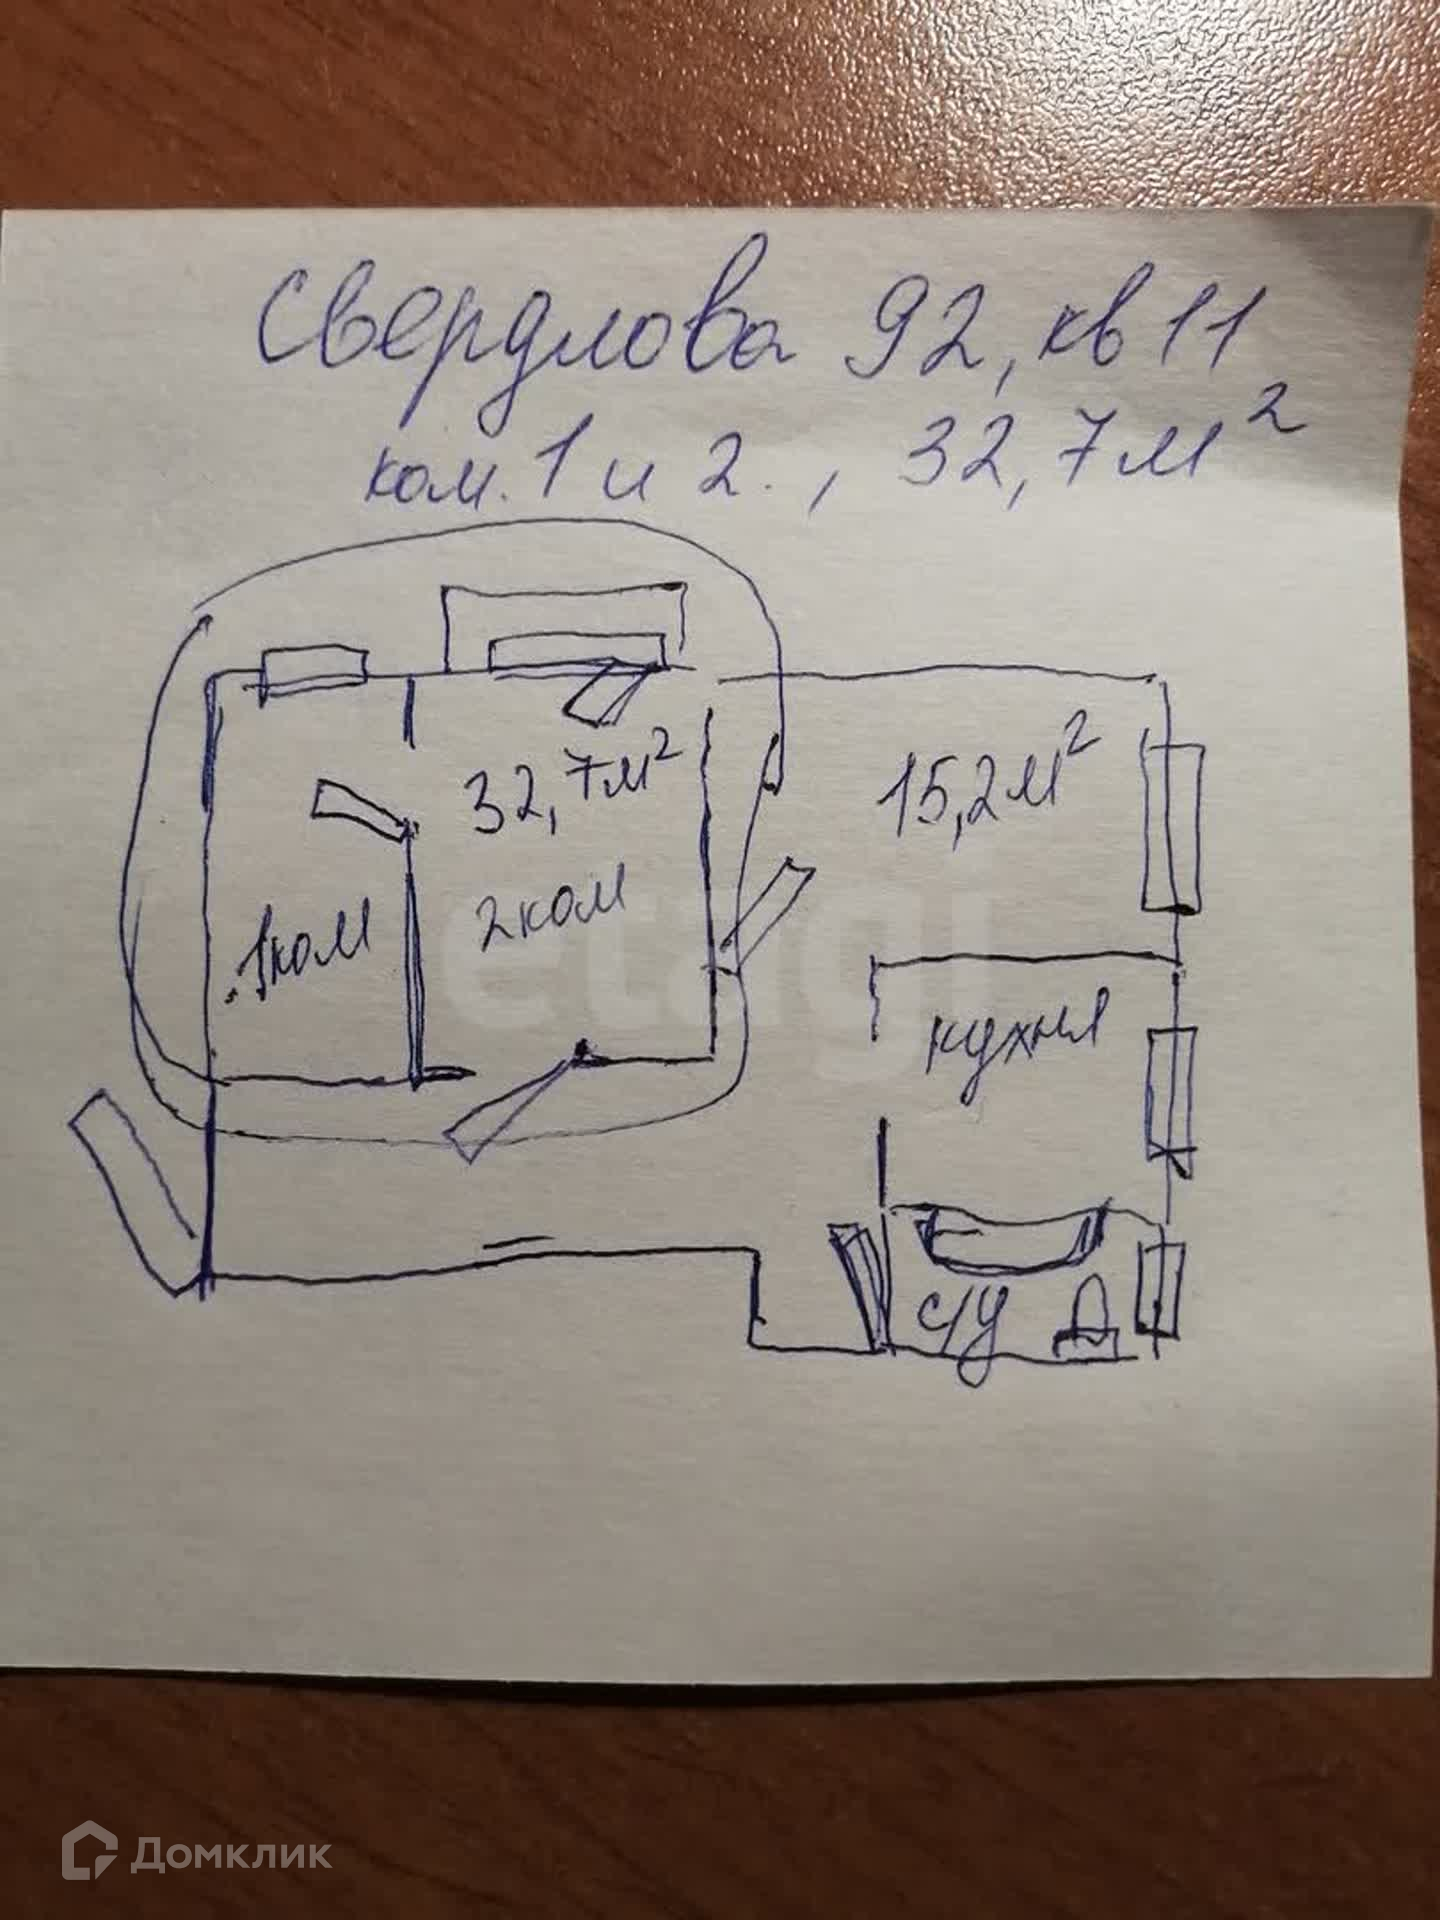 Свердлова 92, кв 11
ком. 1 и 2. , 32,7 м²
32,7 м²
15,2 м²
1 ком
2 ком
кухня
с/у
etagi
Домклик